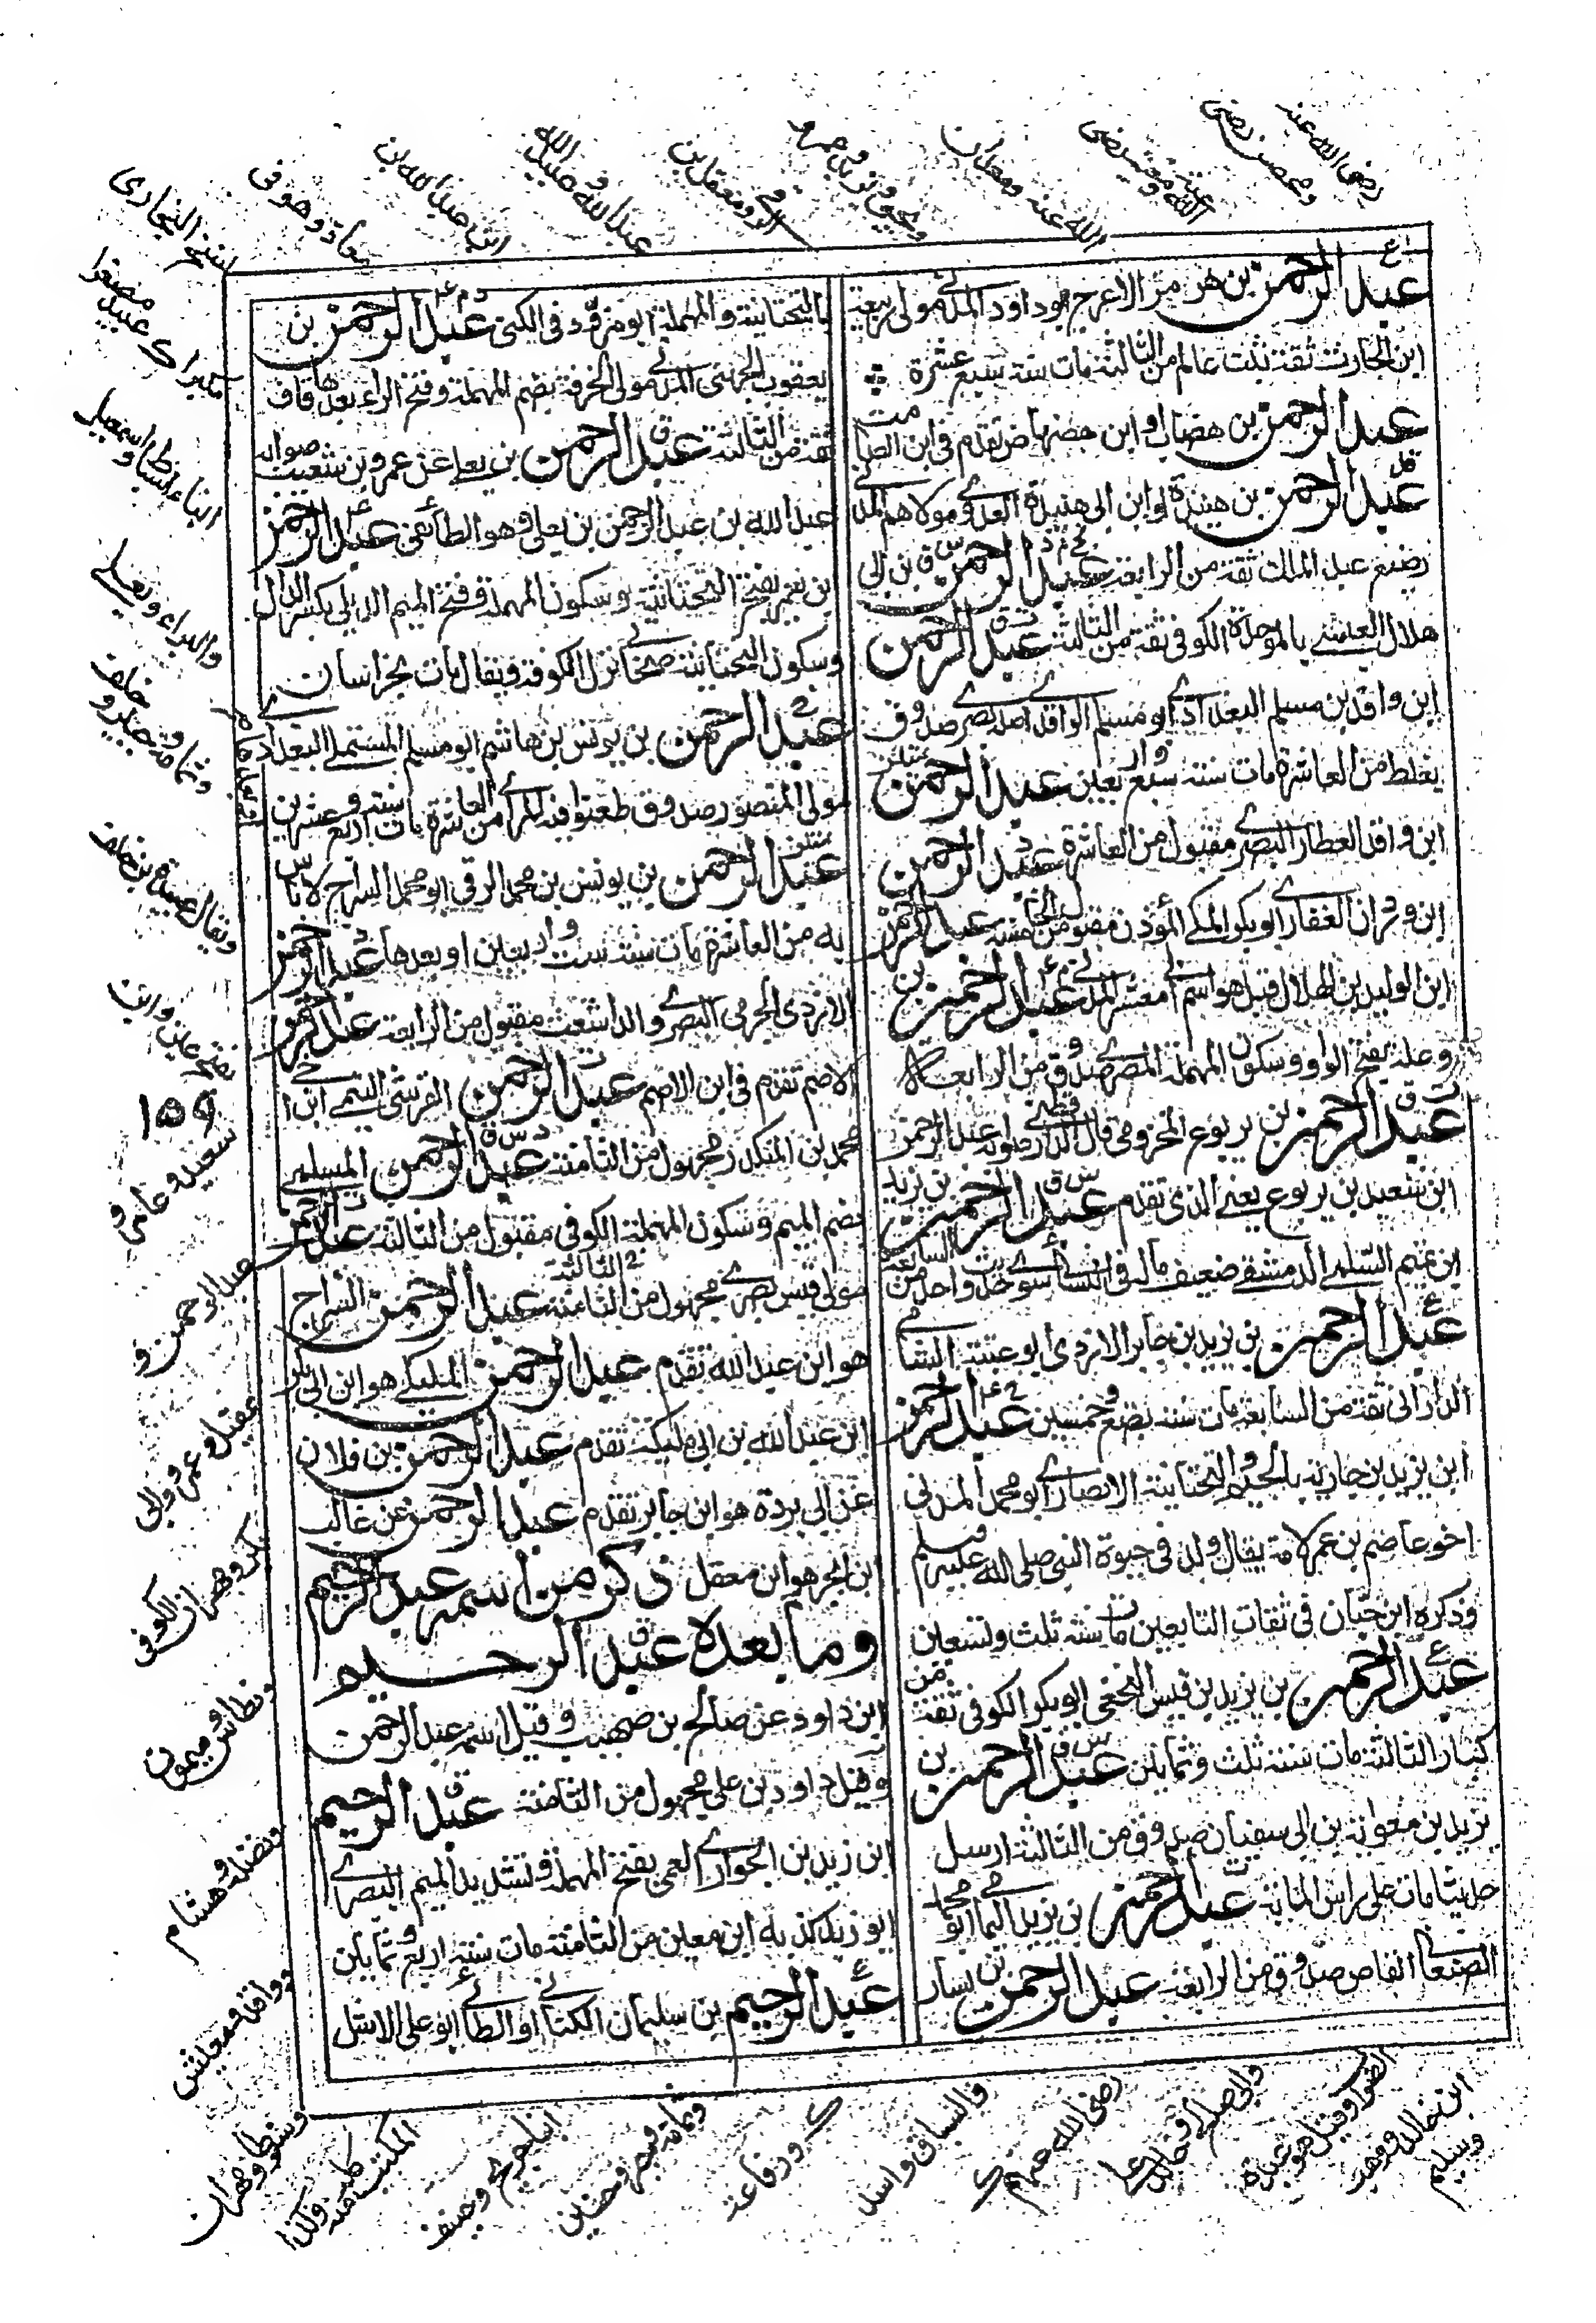 ع
عبد الرحمن بن هرمز الاعرج ابو داود المدني مولى ربيعة
ابن الحارث ثقة ثبت عالم من الثالثة مات سنة سبع عشرة
عبد الرحمن بن هضاب او ابن هضهاض تقدم في ابن الصامت
قد
عبد الرحمن بن هنيدة او ابن ابي هنيدة العدوي مولاهم المدني
رضيع عبد الملك ثقة من الرابعة عبد الرحمن بن ابي
هلال العبسي بالموحدة الكوفي ثقة من الثالثة عبد الرحمن
ابن واقد بن مسلم البغدادي ابو مسلم الواقدي اصله بصري صدوق
يغلط من العاشرة مات سنة سبع واربعين عبد الرحمن
ابن واقد العطار البصري مقبول من العاشرة عبد الرحمن
ابن وردان الغفاري ابو بكر المكي المؤذن مقبول من الخامسة عبد الرحمن
ابن الوليد بن هلال قيل هو اسم ابي معشر المدني عبد الرحمن بن
وعلة بفتح الواو وسكون المهملة المصري صدوق من الرابعة
عبد الرحمن بن يربوع المخزومي قال الدارقطني صوابه عبد الرحمن
ابن سعيد بن يربوع يعني الذي تقدم عبد الرحمن بن يزيد
ابن تميم السلمي الدمشقي ضعيف ماله في النسائي سوى حديث واحد من السابعة
عبد الرحمن بن يزيد بن جابر الازدي ابو عتبة الشامي
الداراني ثقة من السابعة مات سنة بضع وخمسين عبد الرحمن
ابن يزيد بن جارية بالجيم والتحتانية الانصاري ابو محمد المدني
اخو عاصم بن عمر لامه يقال ولد في حيوة النبي صلى الله عليه وسلم
وذكره ابن حبان في ثقات التابعين مات سنة ثلث وتسعين
عبد الرحمن بن يزيد بن قيس النخعي ابو بكر الكوفي ثقة من
كبار الثالثة مات سنة ثلث وثمانين عبد الرحمن بن
يزيد بن معوية بن ابي سفيان صدوق من الثالثة ارسل
حديثا مات على راس المائة عبد الرحمن بن يزيد اليماني ابو محمد
الصنعاني القاص صدوق من الرابعة عبد الرحمن بن يسار
بالتحتانية والمهملة ابو مزرد في الكنى عبد الرحمن بن
يعقوب الجهني المدني مولى الحرقة بضم المهملة وفتح الراء بعدها قاف
ثقة من الثالثة عبد الرحمن بن يعلى عن عمرو بن شعيب صوابه
عبد الله بن عبد الرحمن بن يعلى وهو الطائفي عبد الرحمن
بن يعمر بفتح التحتانية وسكون المهملة وفتح الميم الديلي بكسر الدال
وسكون التحتانية صحابي نزل الكوفة ويقال مات بخراسان
عبد الرحمن بن يونس بن هاشم ابو مسلم المستملي البغدادي
مولى المنصور صدوق طعنوا فيه للراي من العاشرة مات سنة اربع وعشرين
عبد الرحمن بن يونس بن محمد الرقي ابو محمد السراج لا باس
به من العاشرة مات سنة ست واربعين او بعدها عبد الرحمن
الازدي الجرمي البصري والد اشعث مقبول من الرابعة عبد الرحمن
الاصم تقدم في ابن الاصم عبد الرحمن القرشي التيمي ابن اخي
محمد بن المنكدر مجهول من الثامنة عبد الرحمن المسلي
بضم الميم وسكون المهملة الكوفي مقبول من الثالثة عبد الرحمن
مولى قيس بصري مجهول من الثامنة عبد الرحمن السراج
هو ابن عبد الله تقدم عبد الرحمن المليكي هو ابن ابي بكر
ابن عبد الله بن ابي مليكة تقدم عبد الرحمن بن فلان
عن ابي بردة هو ابن جابر تقدم عبد الرحمن عن غالب
ابن ابجر هو ابن معقل ذكر من اسمه عبد الرحيم
وما بعده عبد الرحيم
ابن داود عن صالح بن صهيب وقيل اسمه عبد الرحمن
وقيل داود بن علي مجهول من الثامنة عبد الرحيم
ابن زيد بن الحواري العمي بفتح المهملة وتشديد الميم البصري
ابو زيد كذبه ابن معين من الثامنة مات سنة اربع وثمانين
عبد الرحيم بن سليمان الكناني او الطائي ابو علي الاشل
رضي الله عنه
ومحصن رضي
الله عنه ومعقل بن
عبد الله وعبيد الله
ابن عبد الله بن
معاذ وهو في
نسخة البخاري
مكبرا ك عبيد مصغرا
ويقال عبيدة بن خلف
١٥٩
سعيد وعامر و
عبد الرحمن و
عقيل وعمر وابي
بكر ومهران الكوفي
ونضلة وهشام
وواقد ومعيش
ك ورفاعة
رضي الله عنهم ك